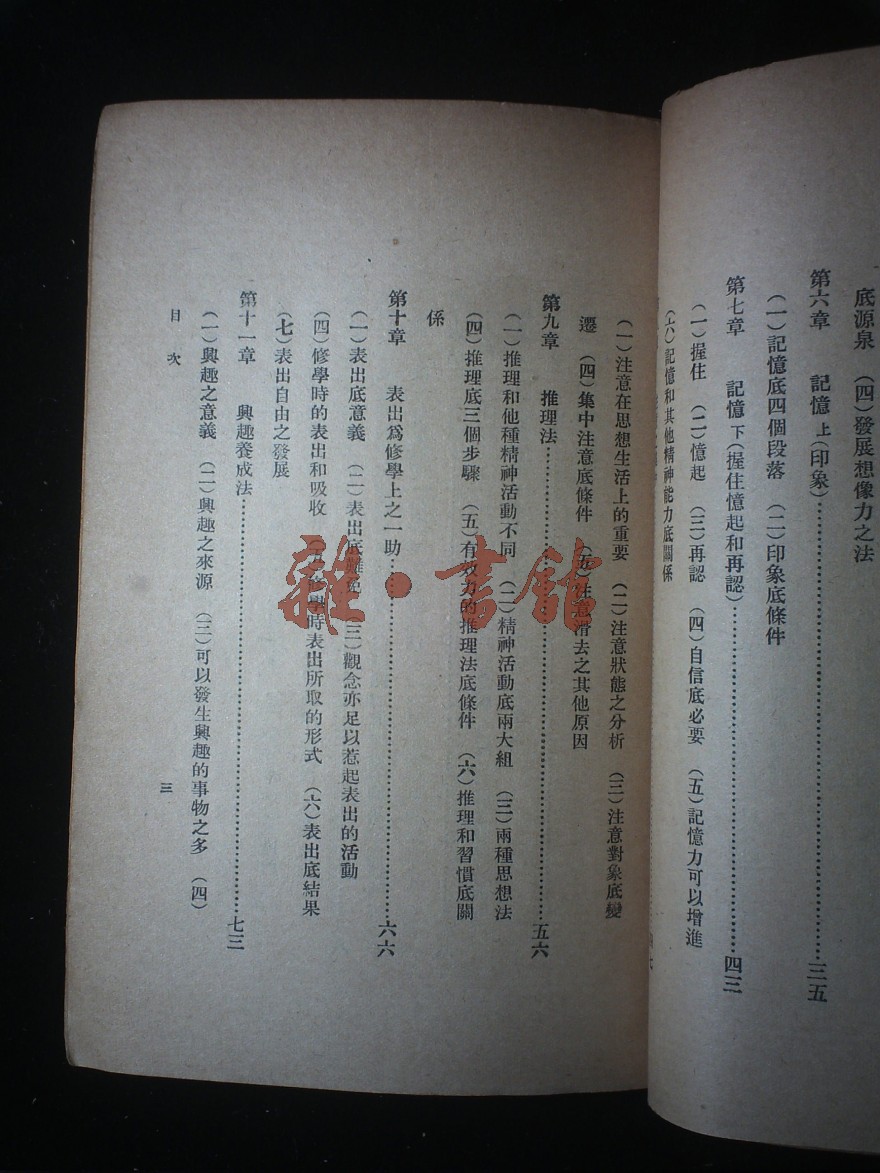 底源泉 (四)發展想像力之法
第六章 記憶上(印象)……三五
(一)記憶底四個段落 (二)印象底條件
第七章 記憶下(握住憶起和再認)……四三
(一)握住 (二)憶起 (三)再認 (四)自信底必要 (五)記憶力可以增進
(六)記憶和其他精神能力底關係
(一)注意在思想生活上的重要 (二)注意狀態之分析 (三)注意對象底變
遷 (四)集中注意底條件 (五)注意滑去之其他原因
第九章 推理法……五六
(一)推理和他種精神活動不同 (二)精神活動底兩大組 (三)兩種思想法
(四)推理底三個步驟 (五)有效力的推理法底條件 (六)推理和習慣底關
係
第十章 表出爲修學上之一助……六六
(一)表出底意義 (二)表出底難免 (三)觀念亦足以惹起表出的活動
(四)修學時的表出和吸收 (五)修學時表出所取的形式 (六)表出底結果
(七)表出自由之發展
第十一章 興趣養成法……七三
(一)興趣之意義 (二)興趣之來源 (三)可以發生興趣的事物之多 (四)
目次
三
雜·書館